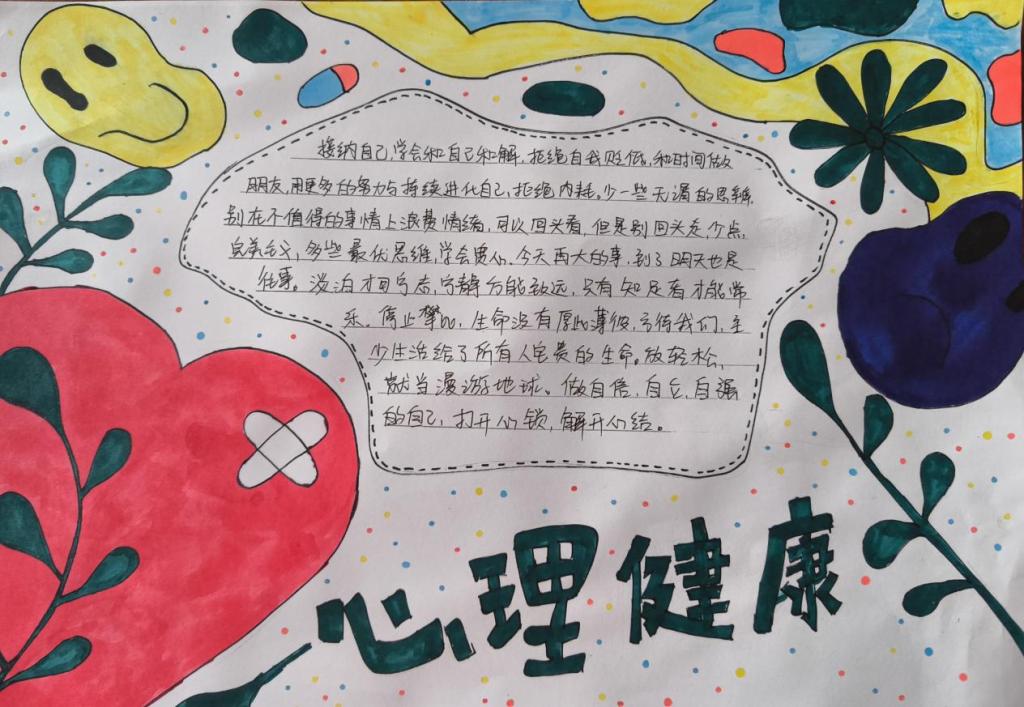 接纳自己,学会和自己和解,拒绝自我贬低,和时间做
朋友,用更多的努力与持续进化自己,拒绝内耗。少一些无谓的思维,
别在不值得的事情上浪费情绪,可以回头看,但是别回头走,少点,
完美主义,多些最优思维,学会爱人。今天再大的事,到了明天也是
往事。淡泊才可宁志,宁静方能致远,只有知足者才能常
乐。停止攀比,生命没有厚此薄彼,亏待我们,至
少生活给了所有人宝贵的生命。放轻松,
就当漫游地球。做自信,自立,自强
的自己,打开心锁,解开心结。
心理健康